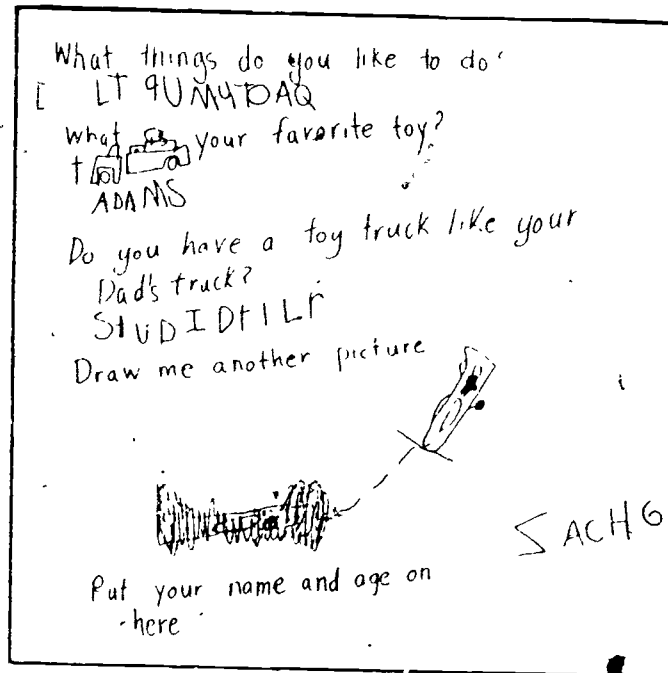 What things do you like to do?
I LT 9UMYTOAQ
What your favorite toy?
ADAMS
Do you have a toy truck like your
Dad's truck?
StUDIDFILF
Draw me another picture
SACH 6
Put your name and age on
here